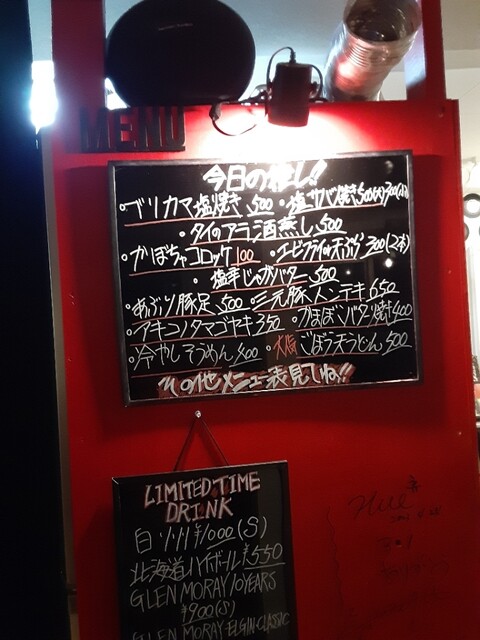 MENU
今日の推し!!
・ブリカマ塩焼き 500 ・塩サバ焼き500(大)300(小)
・タイのアラ酒蒸し 500
・かぼちゃコロッケ100 ・エビフライの天ぷら 300(2本)
・塩辛じゃがバター 500
・あぶり豚足 500 ・三元豚トンテキ 650
・アキコノタマゴヤキ 350 ・かまぼこバター焼き400
・冷やしそうめん 500 ・ごぼう天うどん 500
その他メニュー表見てね!!
LIMITED TIME
DRINK
白ハリハリ ¥1000(S)
北海道ハイボール ¥550
GLEN MORAY 10YEARS
¥900(S)
GLEN MORAY ELGIN CLASSIC